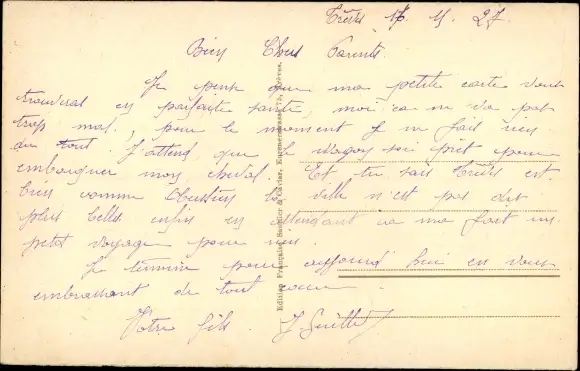 Trèves 17. 11. 27.
Bien Chers Parents
Je pense que ma petite carte vous
trouveras en parfaite santé, moi ca ne va pas
trop mal, pour le moment je ne fait rien
du tout. J'attend que le wagon soi pret pour
embarquer mon cheval. Et tu sais Trèves est
bien comme la ville n'est pas des
plus belle enfin en attendant ca me fait un
petit voyage pour rien.
Je termine pour aujourd'hui en vous
embrassant de tout coeur.
Votre fils J
Edition Française